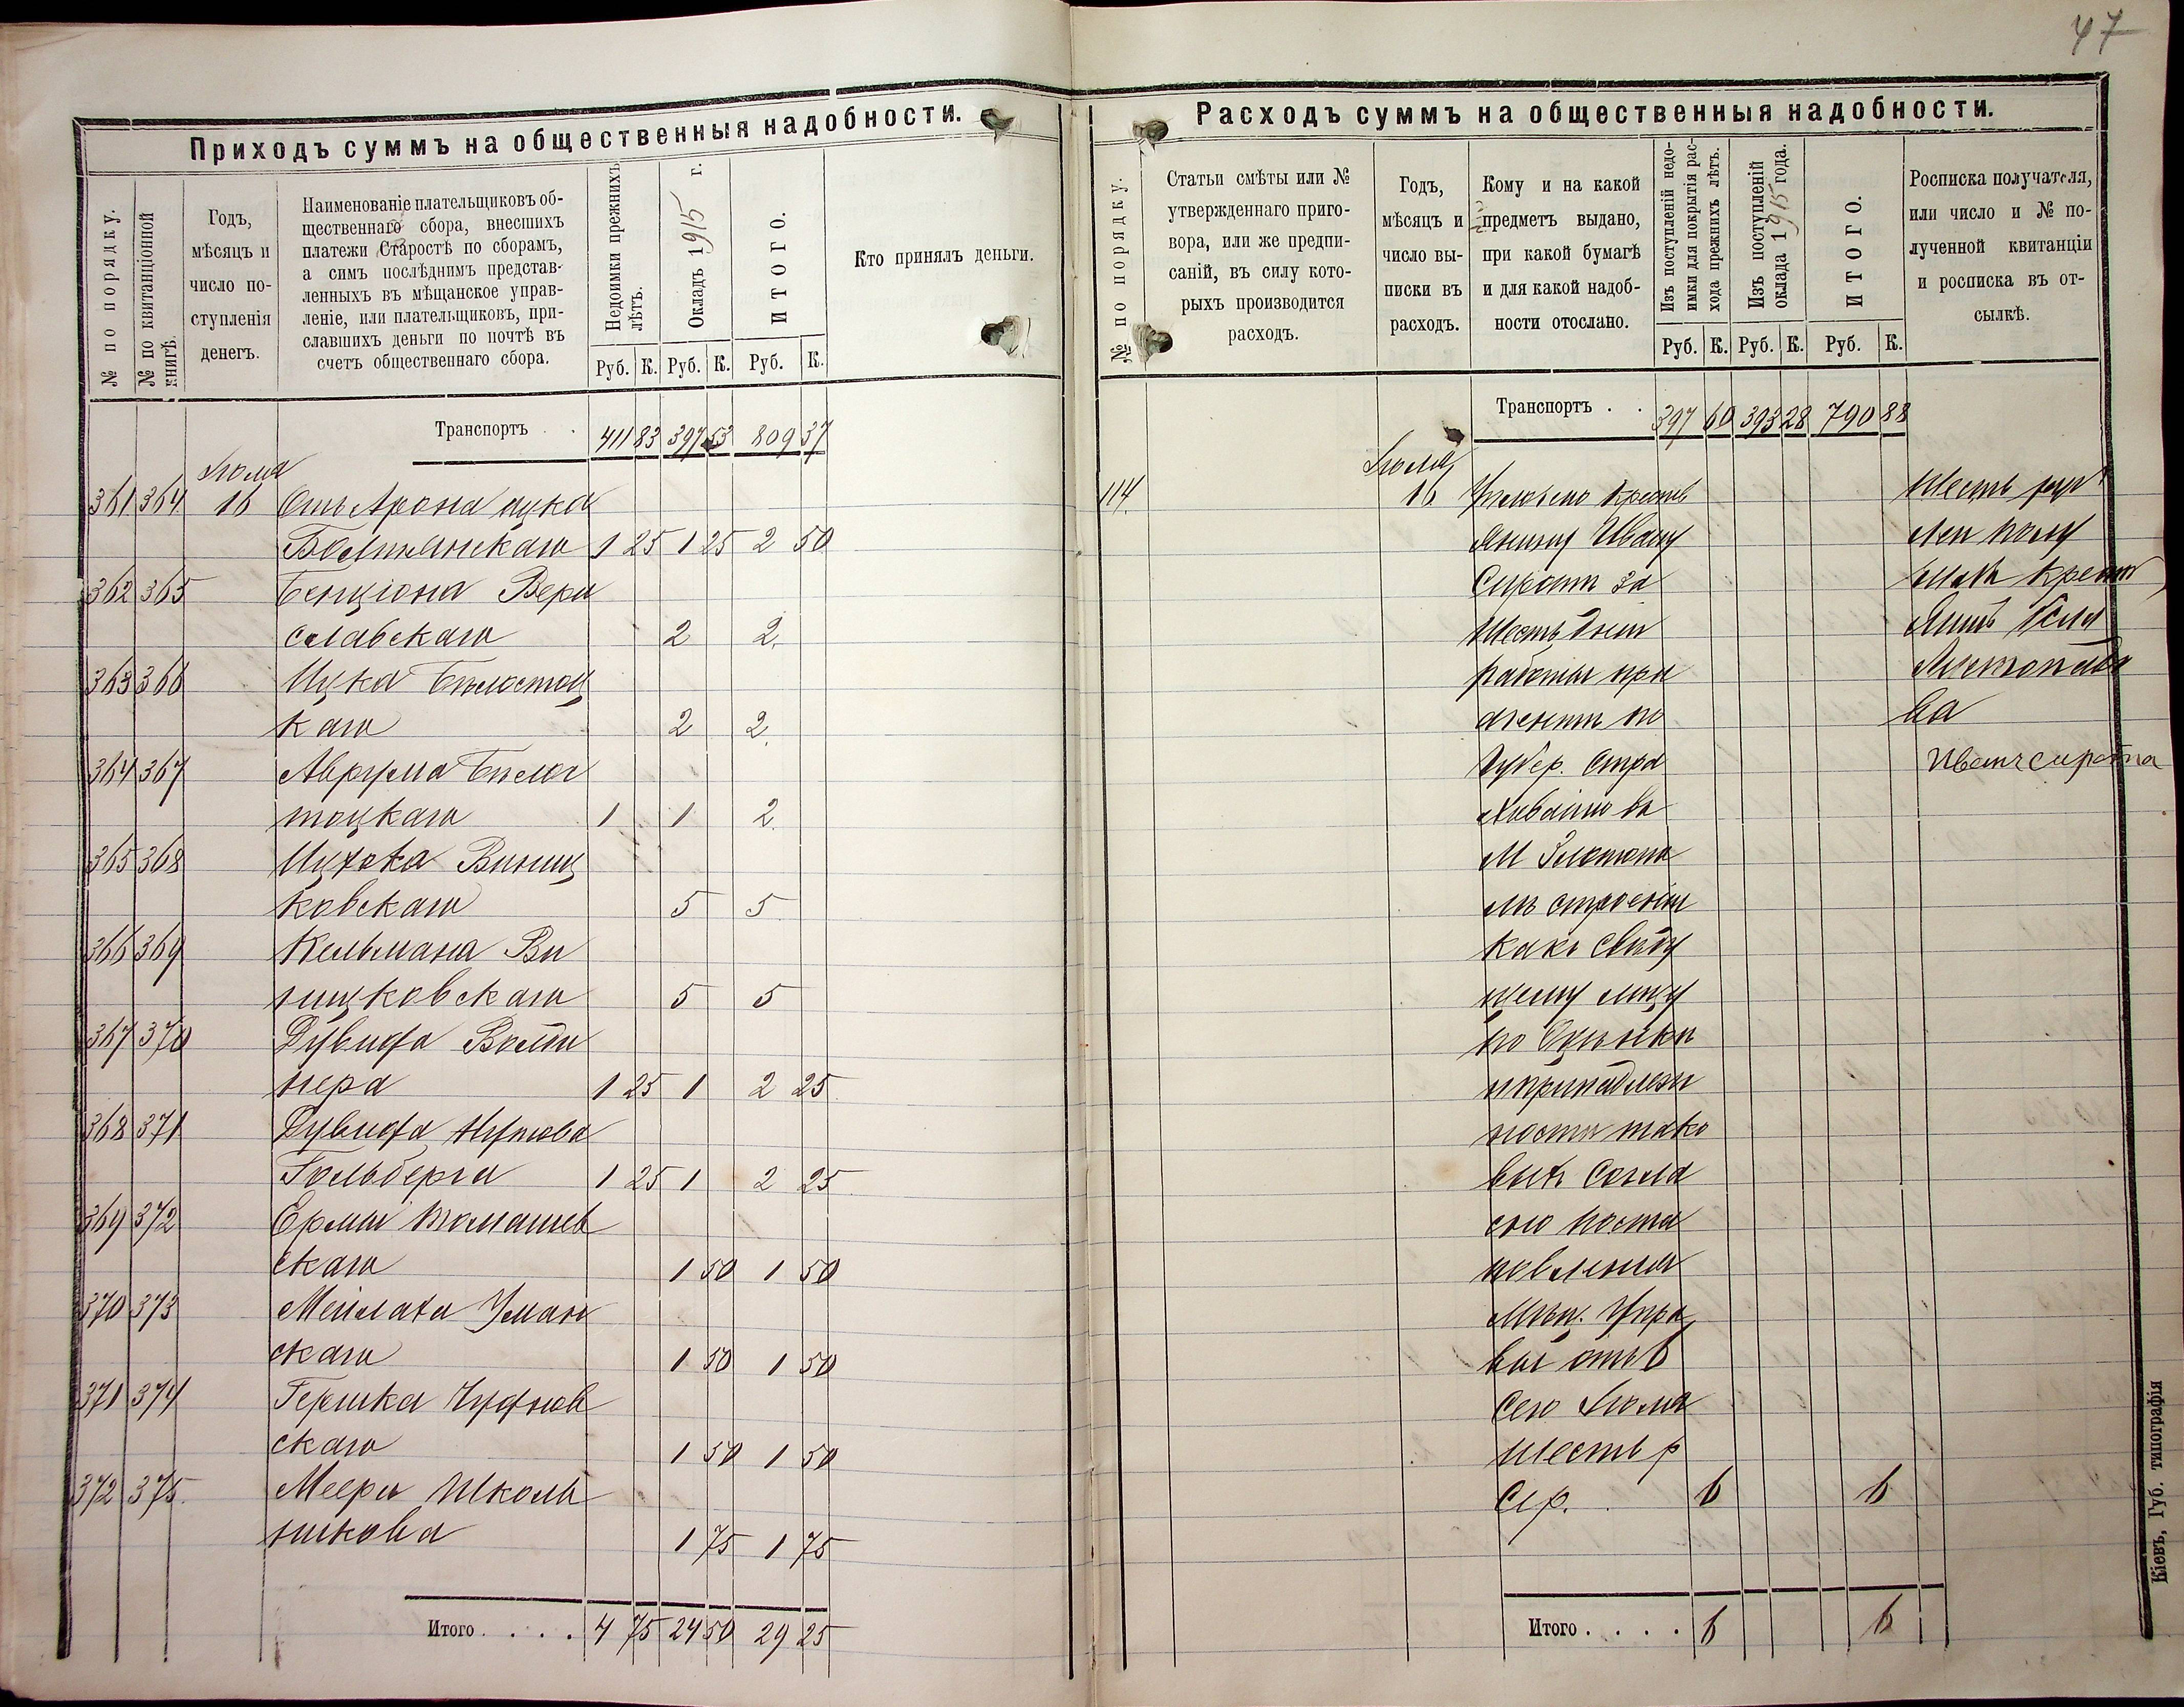 47
Приходъ суммъ на общественныя надобности.
№ по порядку.
№ по квитанціонной книгѣ.
Годъ,
мѣсяцъ и
число по-
ступленія
денегъ.
Наименованіе плательщиковъ об-
щественнаго сбора, внесшихъ
платежи Старостѣ по сборамъ,
а симъ послѣднимъ представ-
ленныхъ въ мѣщанское управ-
леніе, или плательщиковъ, при-
славшихъ деньги по почтѣ въ
счетъ общественнаго сбора.
Недоимки прежнихъ
лѣтъ.
Окладъ 1915 г.
ИТОГО.
Кто принялъ деньги.
Руб. К. Руб. К. Руб. К.
Транспортъ 411 83 397 53 809 37
Іюля
361 364 16 Отъ Арона
1 25 1 25 2 50
362 365 Бенціона Вери
славскаго 2 2.
363 366 Ицка Бѣлостоц
каго 2 2.
364 367 Аврума Бѣлос
тоцкаго 1 1 2.
365 368 Ицхока Виниц
ковскаго 5 5
366 369 Кельмана Ви
ницковскаго 5 5
367 370 Дувида
нера 1 25 1 2 25
368 371 Дувида Нутова
Гольдберга 1 25 1 2 25
369 372 Томашев
скаго 1 50 1 50
370 373 Мейлаха Уман
скаго 1 50 1 50
371 374 Гершка Чуднов
скаго 1 50 1 50
372 375. Меера Школь
никова 1 75 1 75
Итого. . . . 4 75 24 50 29 25
Расходъ суммъ на общественныя надобности.
№ по порядку.
Статьи смѣты или №
утвержденнаго приго-
вора, или же предпи-
саній, въ силу кото-
рыхъ производится
расходъ.
Годъ,
мѣсяцъ и
число вы-
писки въ
расходъ.
Кому и на какой
предметъ выдано,
при какой бумагѣ
и для какой надоб-
ности отослано.
Изъ поступленій недо-
имки для покрытія рас-
хода прежнихъ лѣтъ.
Изъ поступленій
оклада 1915 года.
ИТОГО.
Росписка получателя,
или число и № по-
лученной квитанціи
и росписка въ от-
сылкѣ.
Руб. К. Руб. К. Руб. К.
Транспортъ . . 397 60 393 28 790 88
Іюля
114. 16 Крестъ Шесть руб
янину Ивану лей полу
Сирот за чилъ Крест
Шесть дней
работы при
агентѣ по ва
Губер. Стра Иванъ сирота
хованію въ
М Златопо
лѣ строеній
какъ Свѣду
щему лицу
по Оцѣнки
и принадлеж
ности тако
выхъ Согла
сно поста
новленія
Мѣщ. Упра
вы отъ 6
Сего Іюля
шесть р
Сер. . 6 6
Итого . . . . 6 6
Кіевъ, Губ. типографія